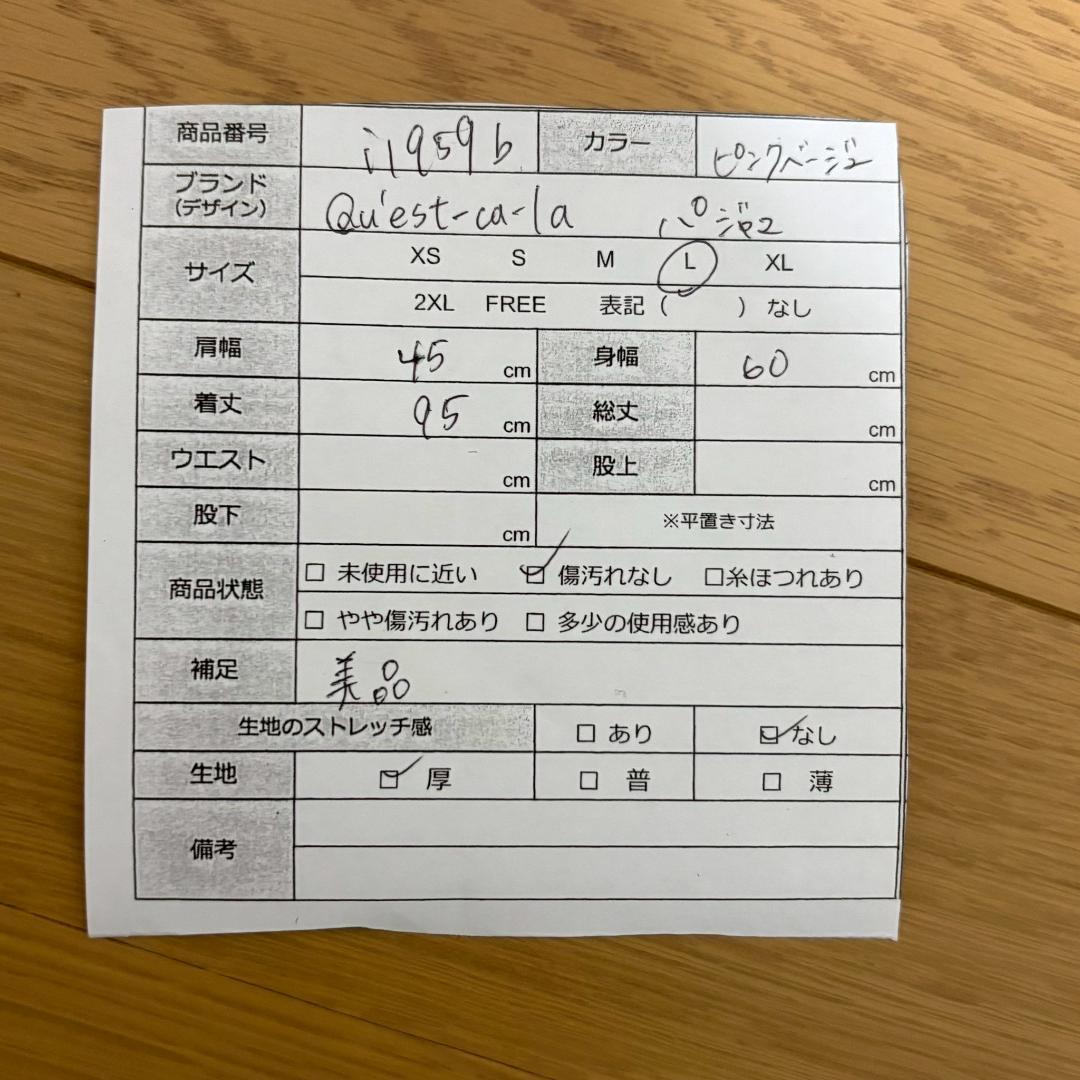 商品番号 i1959b カラー ピンクベージュ
ブランド (デザイン) Qu'est-ca-la パジャマ
サイズ XS S M L XL
2XL FREE 表記 ( ) なし
肩幅 45 cm 身幅 60 cm
着丈 95 cm 総丈 cm
ウエスト cm 股上 cm
股下 cm ※平置き寸法
商品状態 □ 未使用に近い ☑ 傷汚れなし □糸ほつれあり
□ やや傷汚れあり □ 多少の使用感あり
補足 美品
生地のストレッチ感 □ あり ☑ なし
生地 ☑ 厚 □ 普 □ 薄
備考